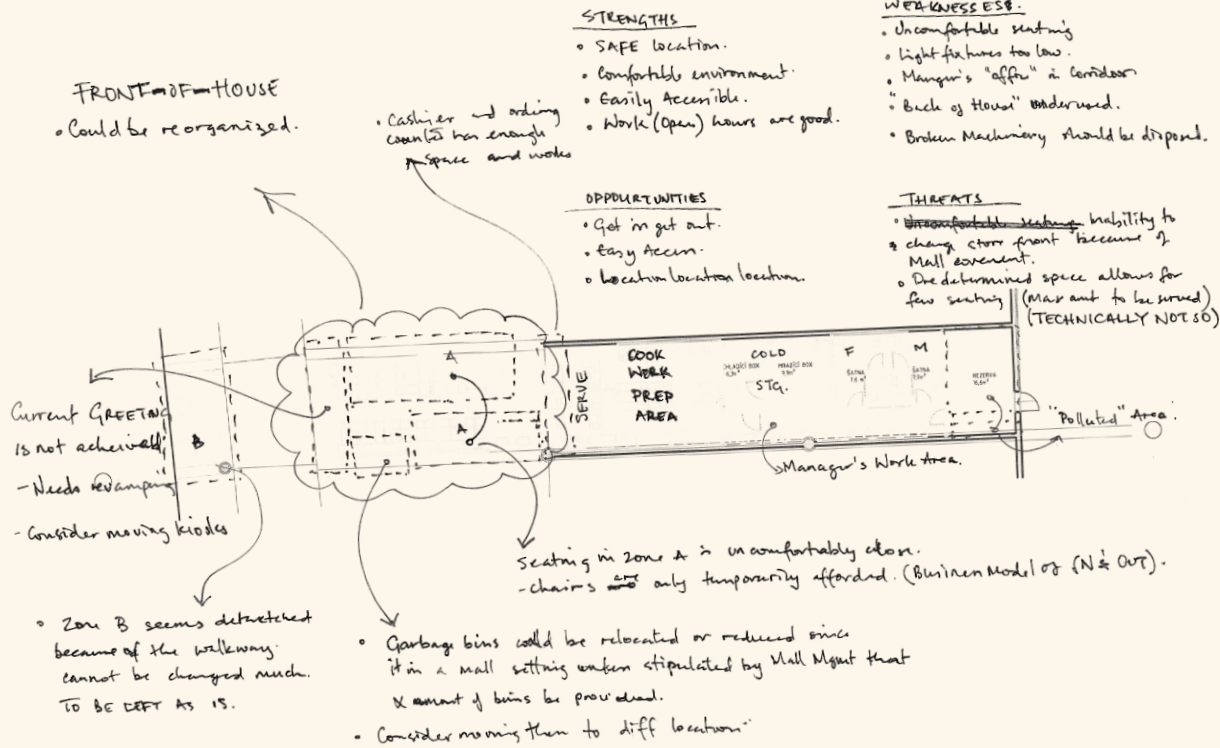 STRENGTHS
• SAFE location.
• Comfortable environment.
• Easily Accessible.
• Work (Open) hours are good.
WEAKNESSES.
• Uncomfortable seating
• Light fixtures too low.
• in Corridoor
• "Back of House" underused.
• Broken Machinery should be disposed.
FRONT-OF-HOUSE
• Could be reorganized.
• Cashier and ordering
counter has enough
space and works
OPPOURTUNITIES
• Get in get out.
• Easy Access.
• Location location location.
THREATS
• Uncomfortable seating Inability to
change store front because of
Mall
• Predetermined space allows for
few seating (Max amt to be served)
(TECHNICALLY NOT SO)
A
A
B
SERVE
COOK
WORK
PREP
AREA
COLD
STG.
CHLADÍCÍ BOX
MRAZÍCÍ BOX
F
M
ŠATNA
ŠATNA
REZERVA
"Polluted" Area.
Manager's Work Area.
Current GREETING
is not acheived
- Needs revamping
- Consider moving kiosks
Seating in zone A is uncomfortably close.
- chairs are only temporarily afforded. (Business Model of IN & OUT).
• Zone B seems detatched
because of the walkway.
cannot be changed much.
TO BE LEFT AS IS.
• Garbage bins could be relocated or reduced since
it in a mall setting unless stipulated by Mall Mgmt that
X amount of bins be provided.
• Consider moving them to diff location